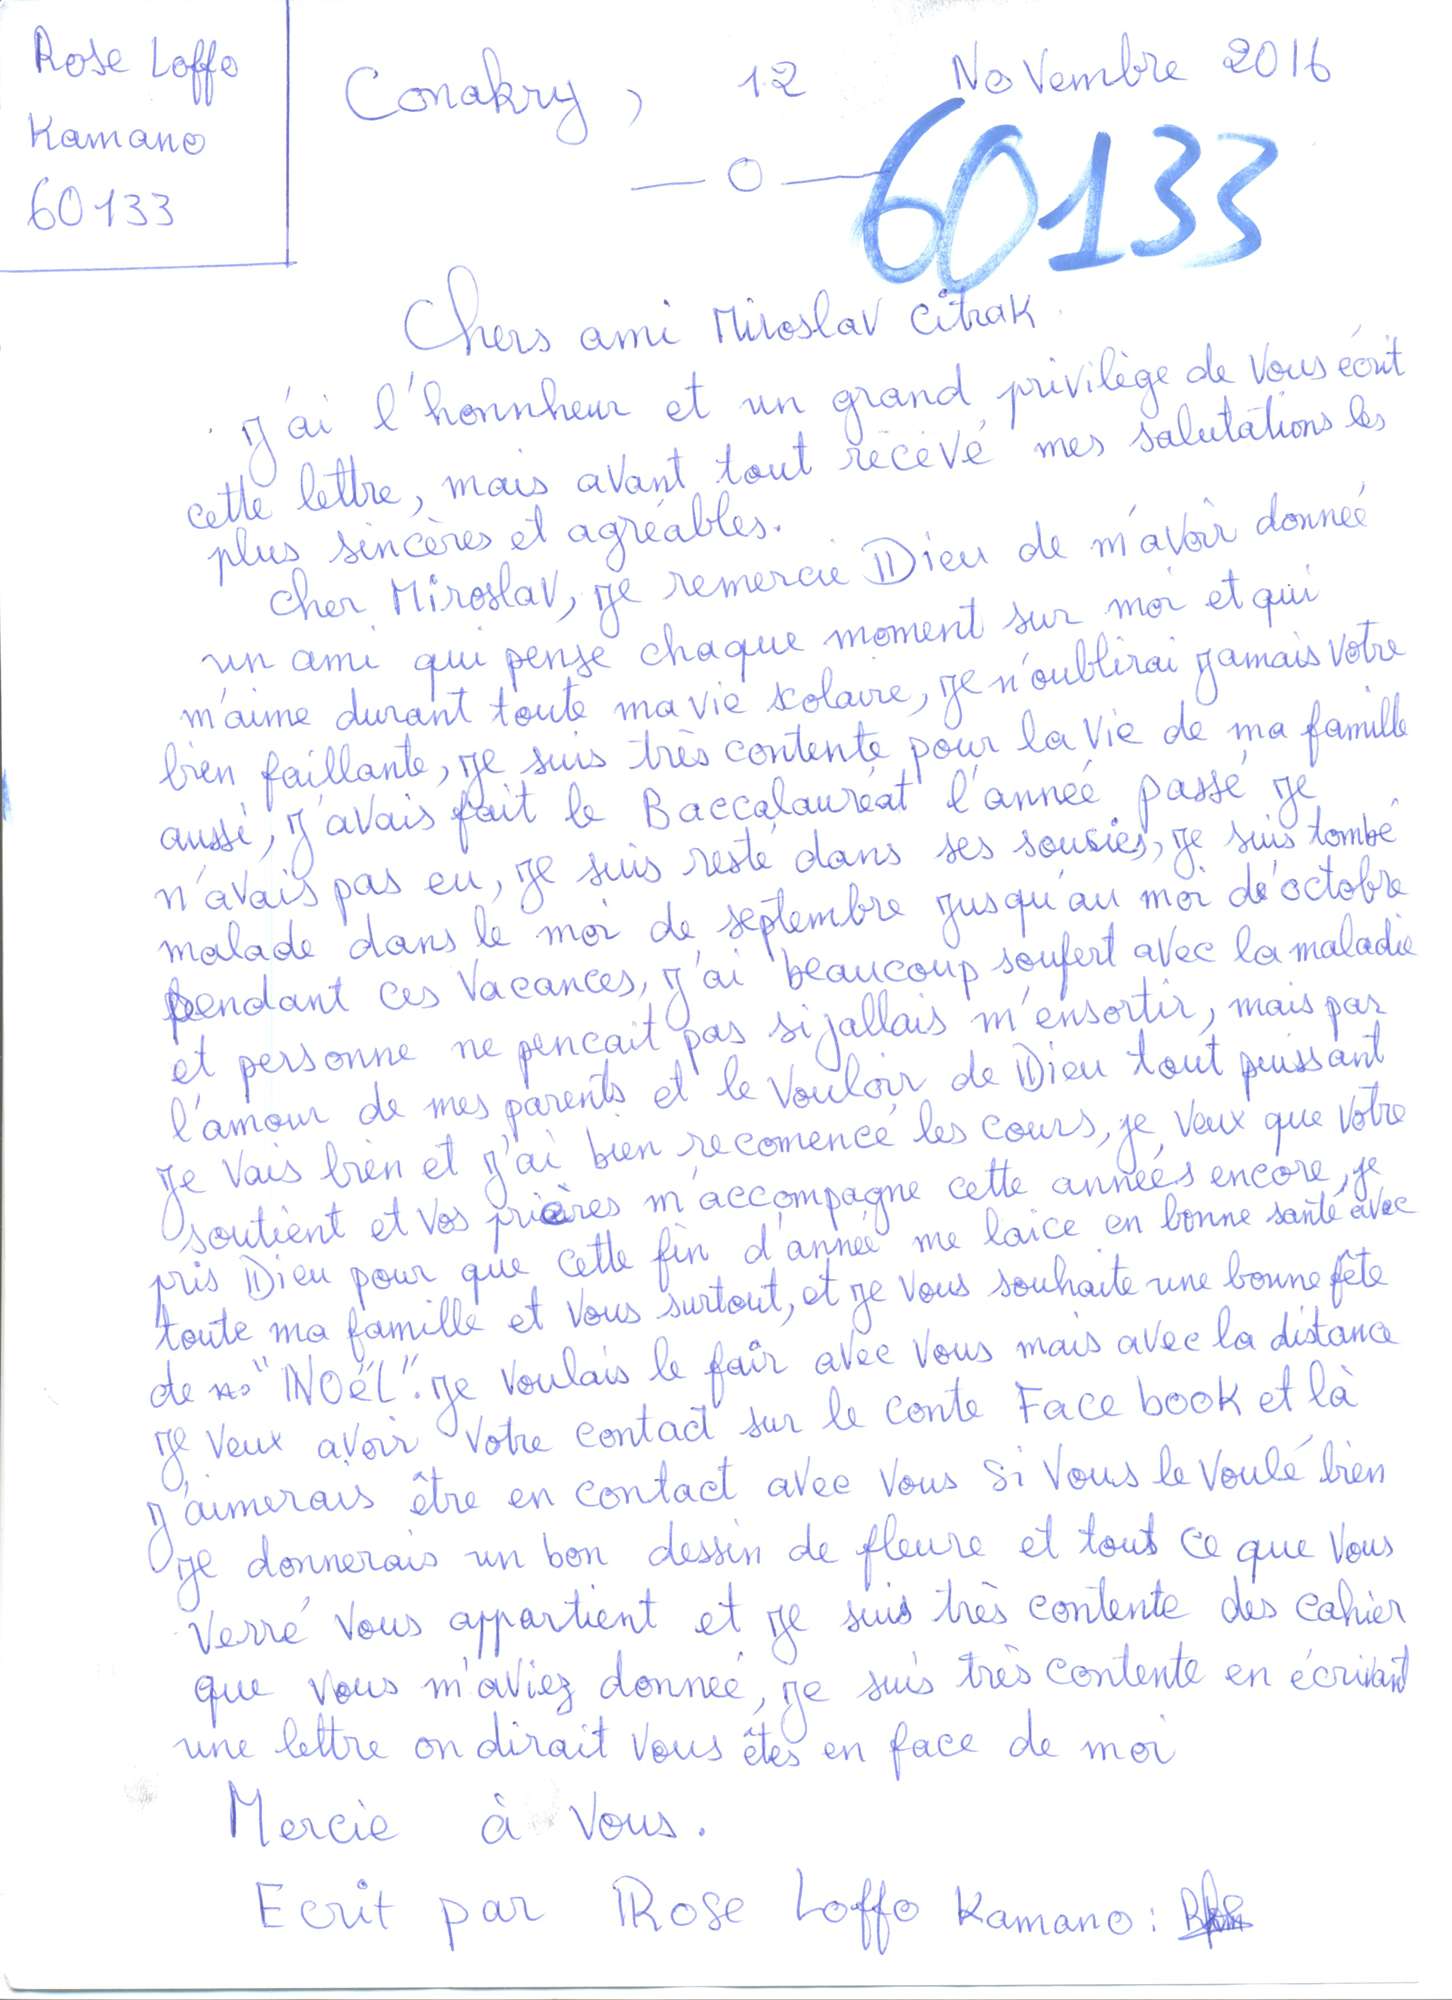 Rose Loffo
Kamano
60133
Conakry, 12 Novembre 2016
— O —
60133
Chers ami Miroslav Citrak
J'ai l'honnheur et un grand privilège de vous écrit
cette lettre, mais avant tout récévé mes salutations les
plus sincères et agréables.
Cher Miroslav, je remercie Dieu de m'avoir donnéé
un ami qui pense chaque moment sur moi et qui
m'aime durant toute ma vie scolaire, je n'oublirai jamais votre
bien faillante, je suis très contente pour la vie de ma famille
aussi, j'avais fait le Baccalauréat l'annéé passé je
n'avais pas eu, je suis resté dans ses soucies, je suis tombé
malade dans le moi de septembre jusqu'au moi de octobre
pendant ces vacances, j'ai beaucoup soufert avec la maladie
et personne ne pencait pas si jallais m'ensortir, mais par
l'amour de mes parents et le vouloir de Dieu tout puissant
je vais bien et j'ai bien recomencé les cours, je veux que votre
soutient et vos prières m'accompagne cette années encore, je
pris Dieu pour que cette fin d'année me laice en bonne santé avec
toute ma famille et vous surtout, et je vous souhaite une bonne fête
de "NOéL". je voulais le fair avec vous mais avec la distance
je veux avoir votre contact sur le conte Face book et là
j'aimerais être en contact avec vous si vous le voulé bien
je donnerais un bon dessin de fleure et tout ce que vous
verré vous appartient et je suis très contente des cahier
que vous m'aviez donneé, je suis très contente en écrivant
une lettre on dirait vous êtes en face de moi
Mercie à vous.
Ecrit par Rose Loffo Kamano :